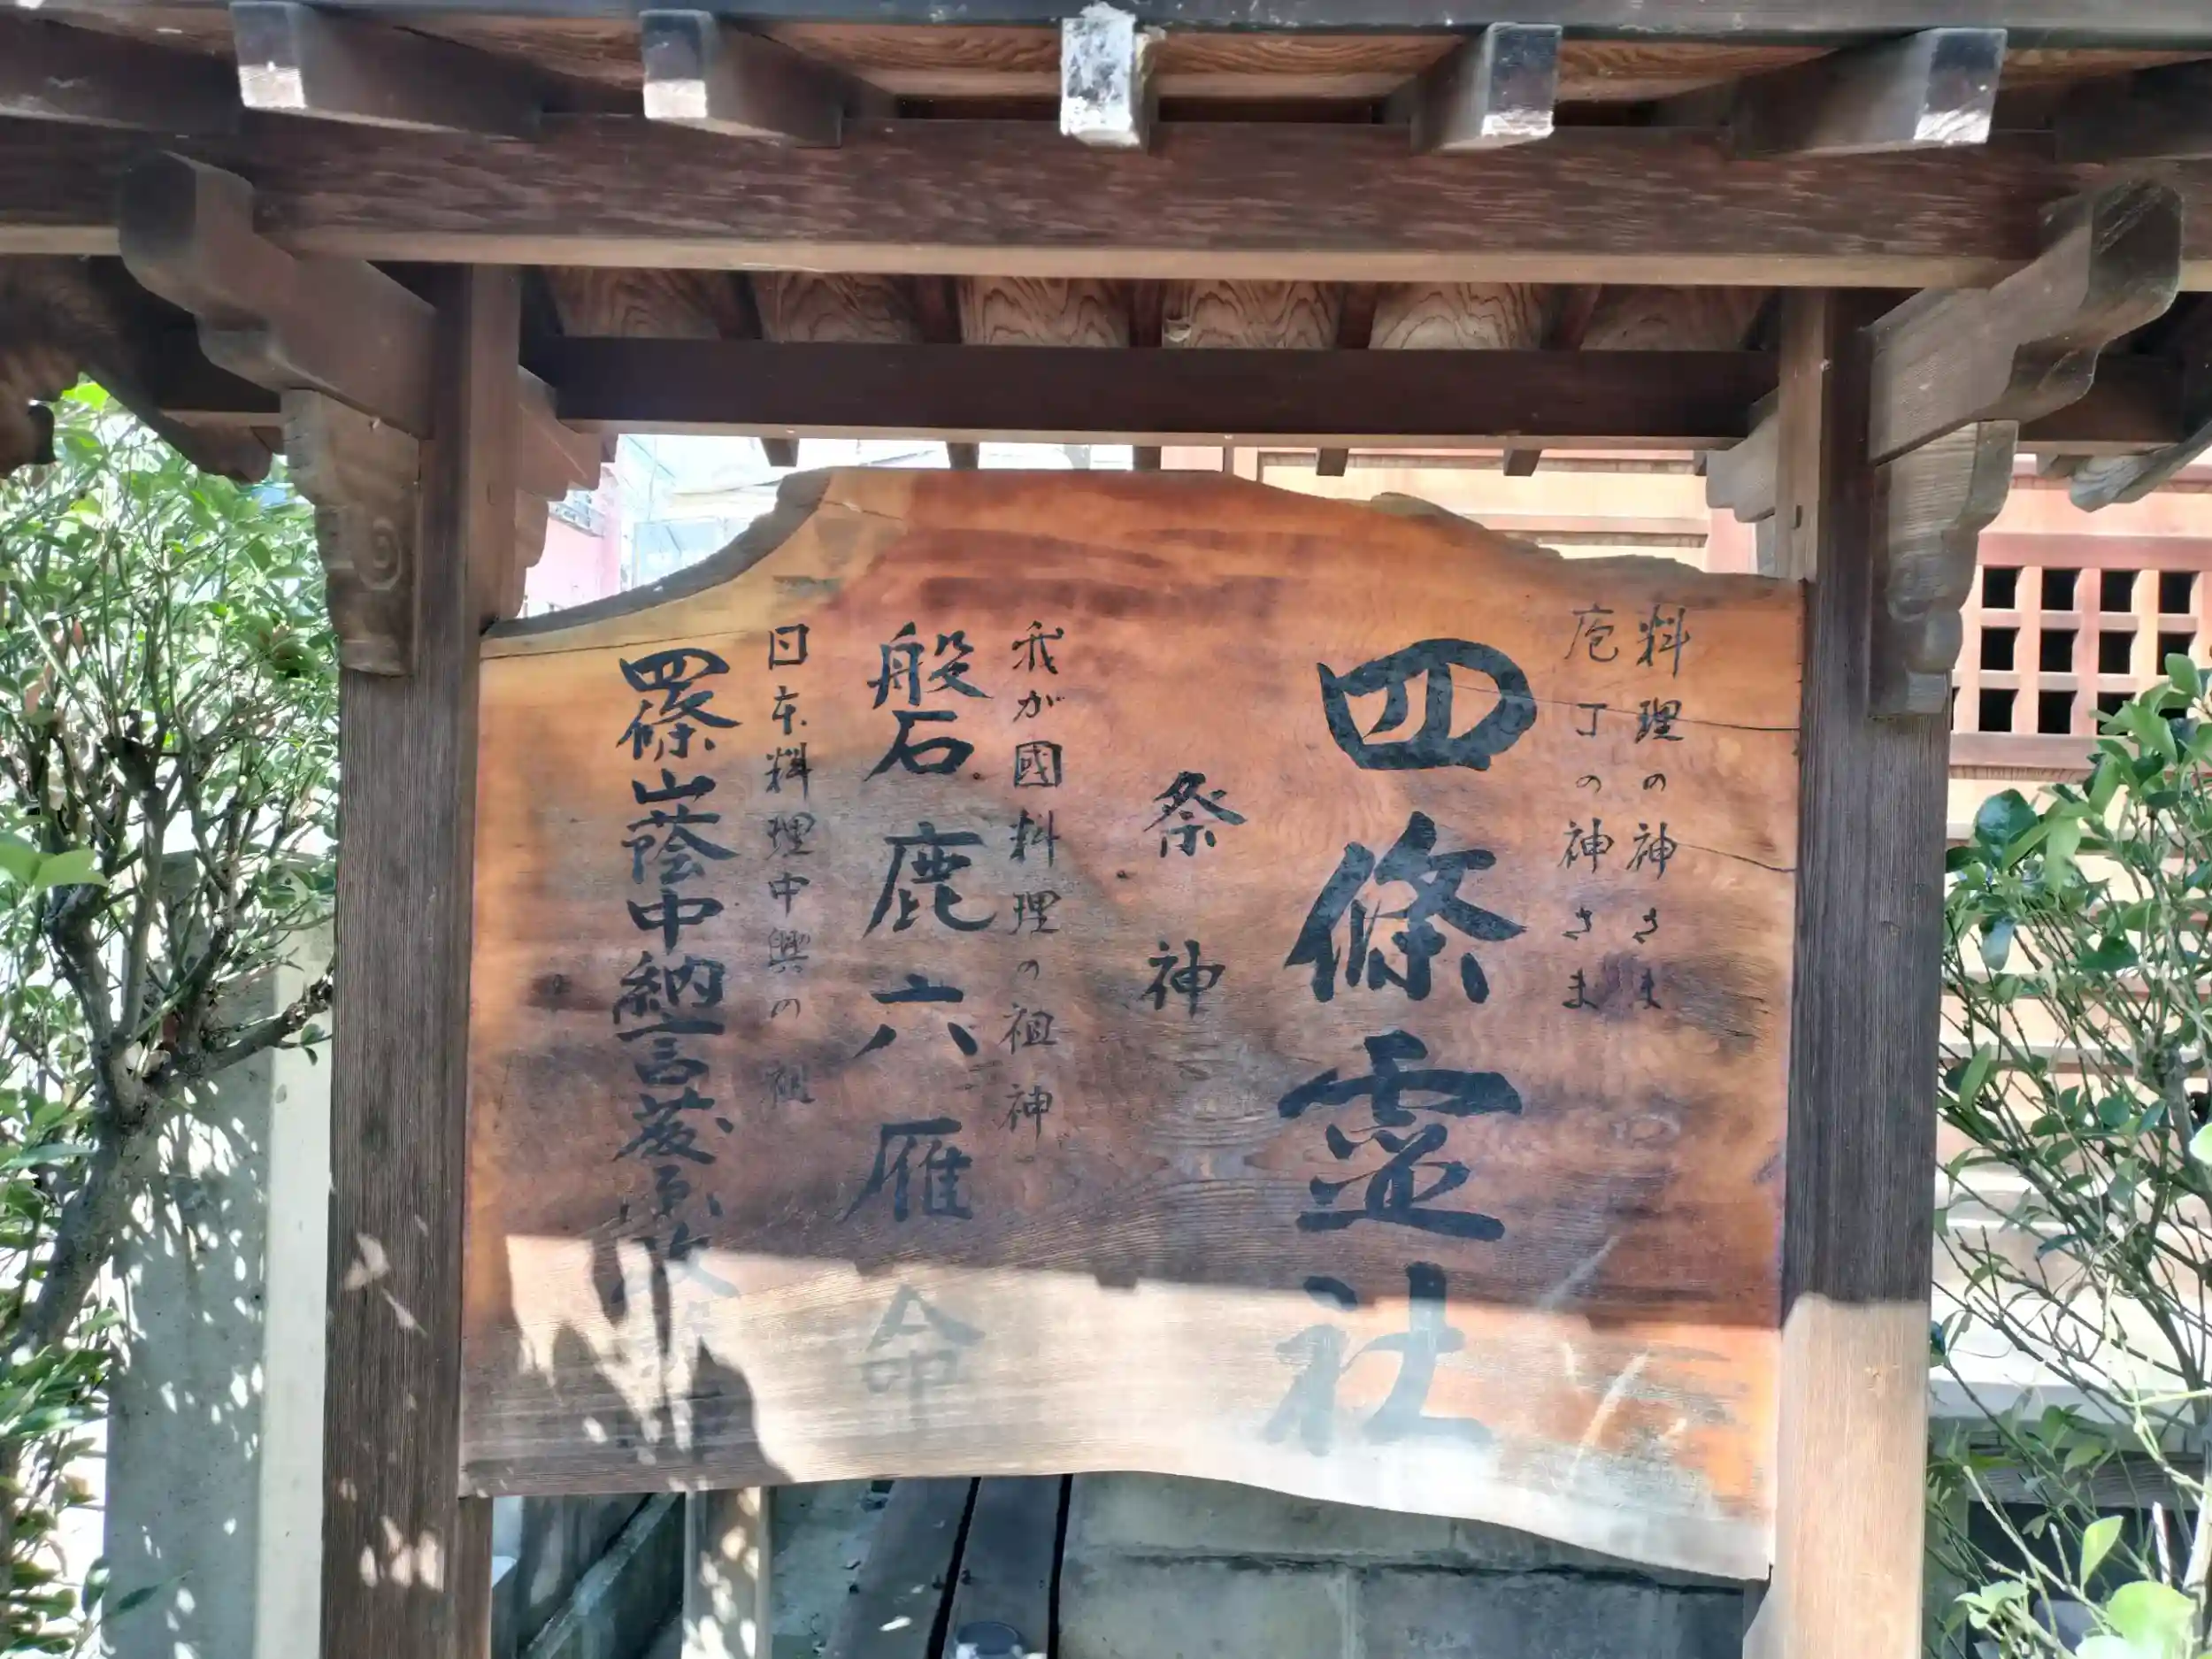 料理の神さま
庖丁の神さま
四條霊社
祭神
我が國料理の祖神
磐鹿六雁命
日本料理中興の祖
四條山蔭中納言藤原政